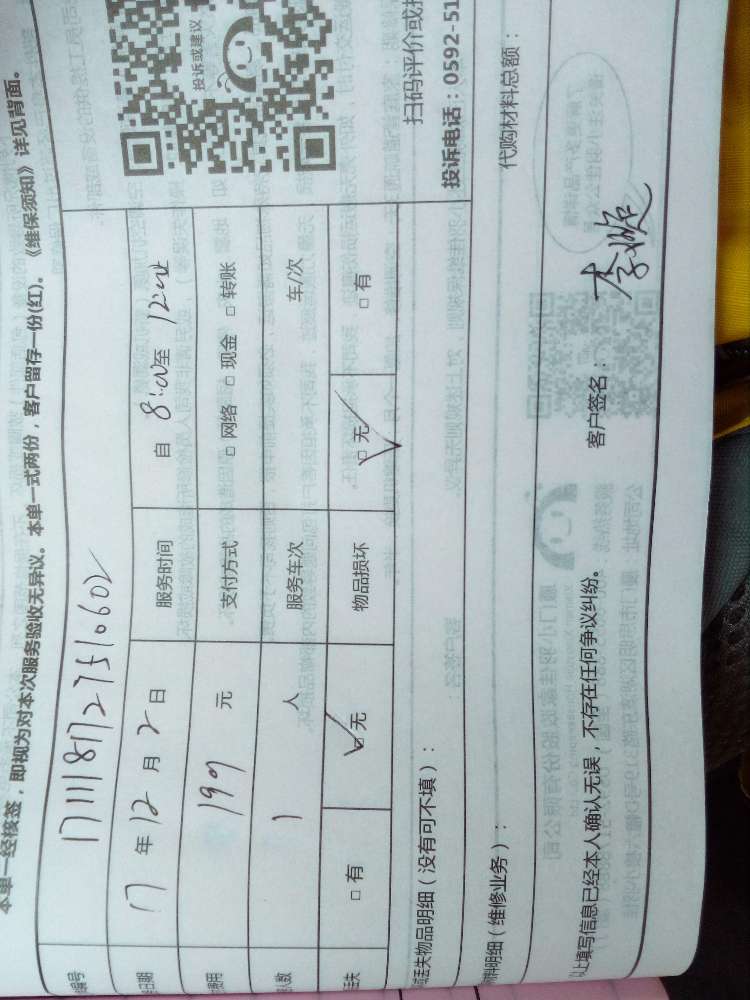 本单一经核签，即视为对本次服务验收无异议。本单一式两份，客户留存一份(红)。《维保须知》详见背面。
编号 1711181727510602
日期 17年12月2日 服务时间 自8:00至12:00
费用 199元 支付方式 □网络 □现金 □转账
人数 1人 服务车次 车/次
丢失 □有 □无 物品损坏 □无 □有
丢失物品明细（没有可不填）：
投诉或建议
扫码评价或投
投诉电话：0592-51
料明细（维修业务）：
代购材料总额：
以上填写信息已经本人确认无误，不存在任何争议纠纷。
客户签名：